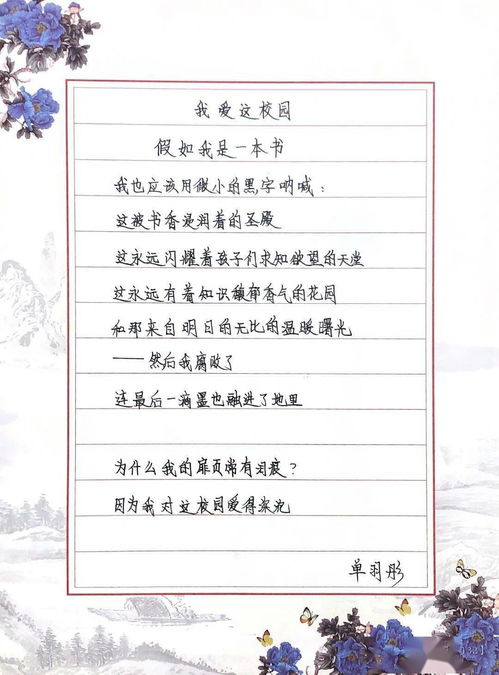 我爱这校园
假如我是一本书
我也应该用微小的黑字呐喊：
这被书香浸润着的圣殿
这永远闪耀着孩子们求知欲望的天堂
这永远有着知识馥郁香气的花园
和那来自明日的无比的温暖曙光
——然后我腐败了
连最后一滴墨也融进了地里
为什么我的扉页常有泪痕？
因为我对这校园爱得深沉
单羽彤